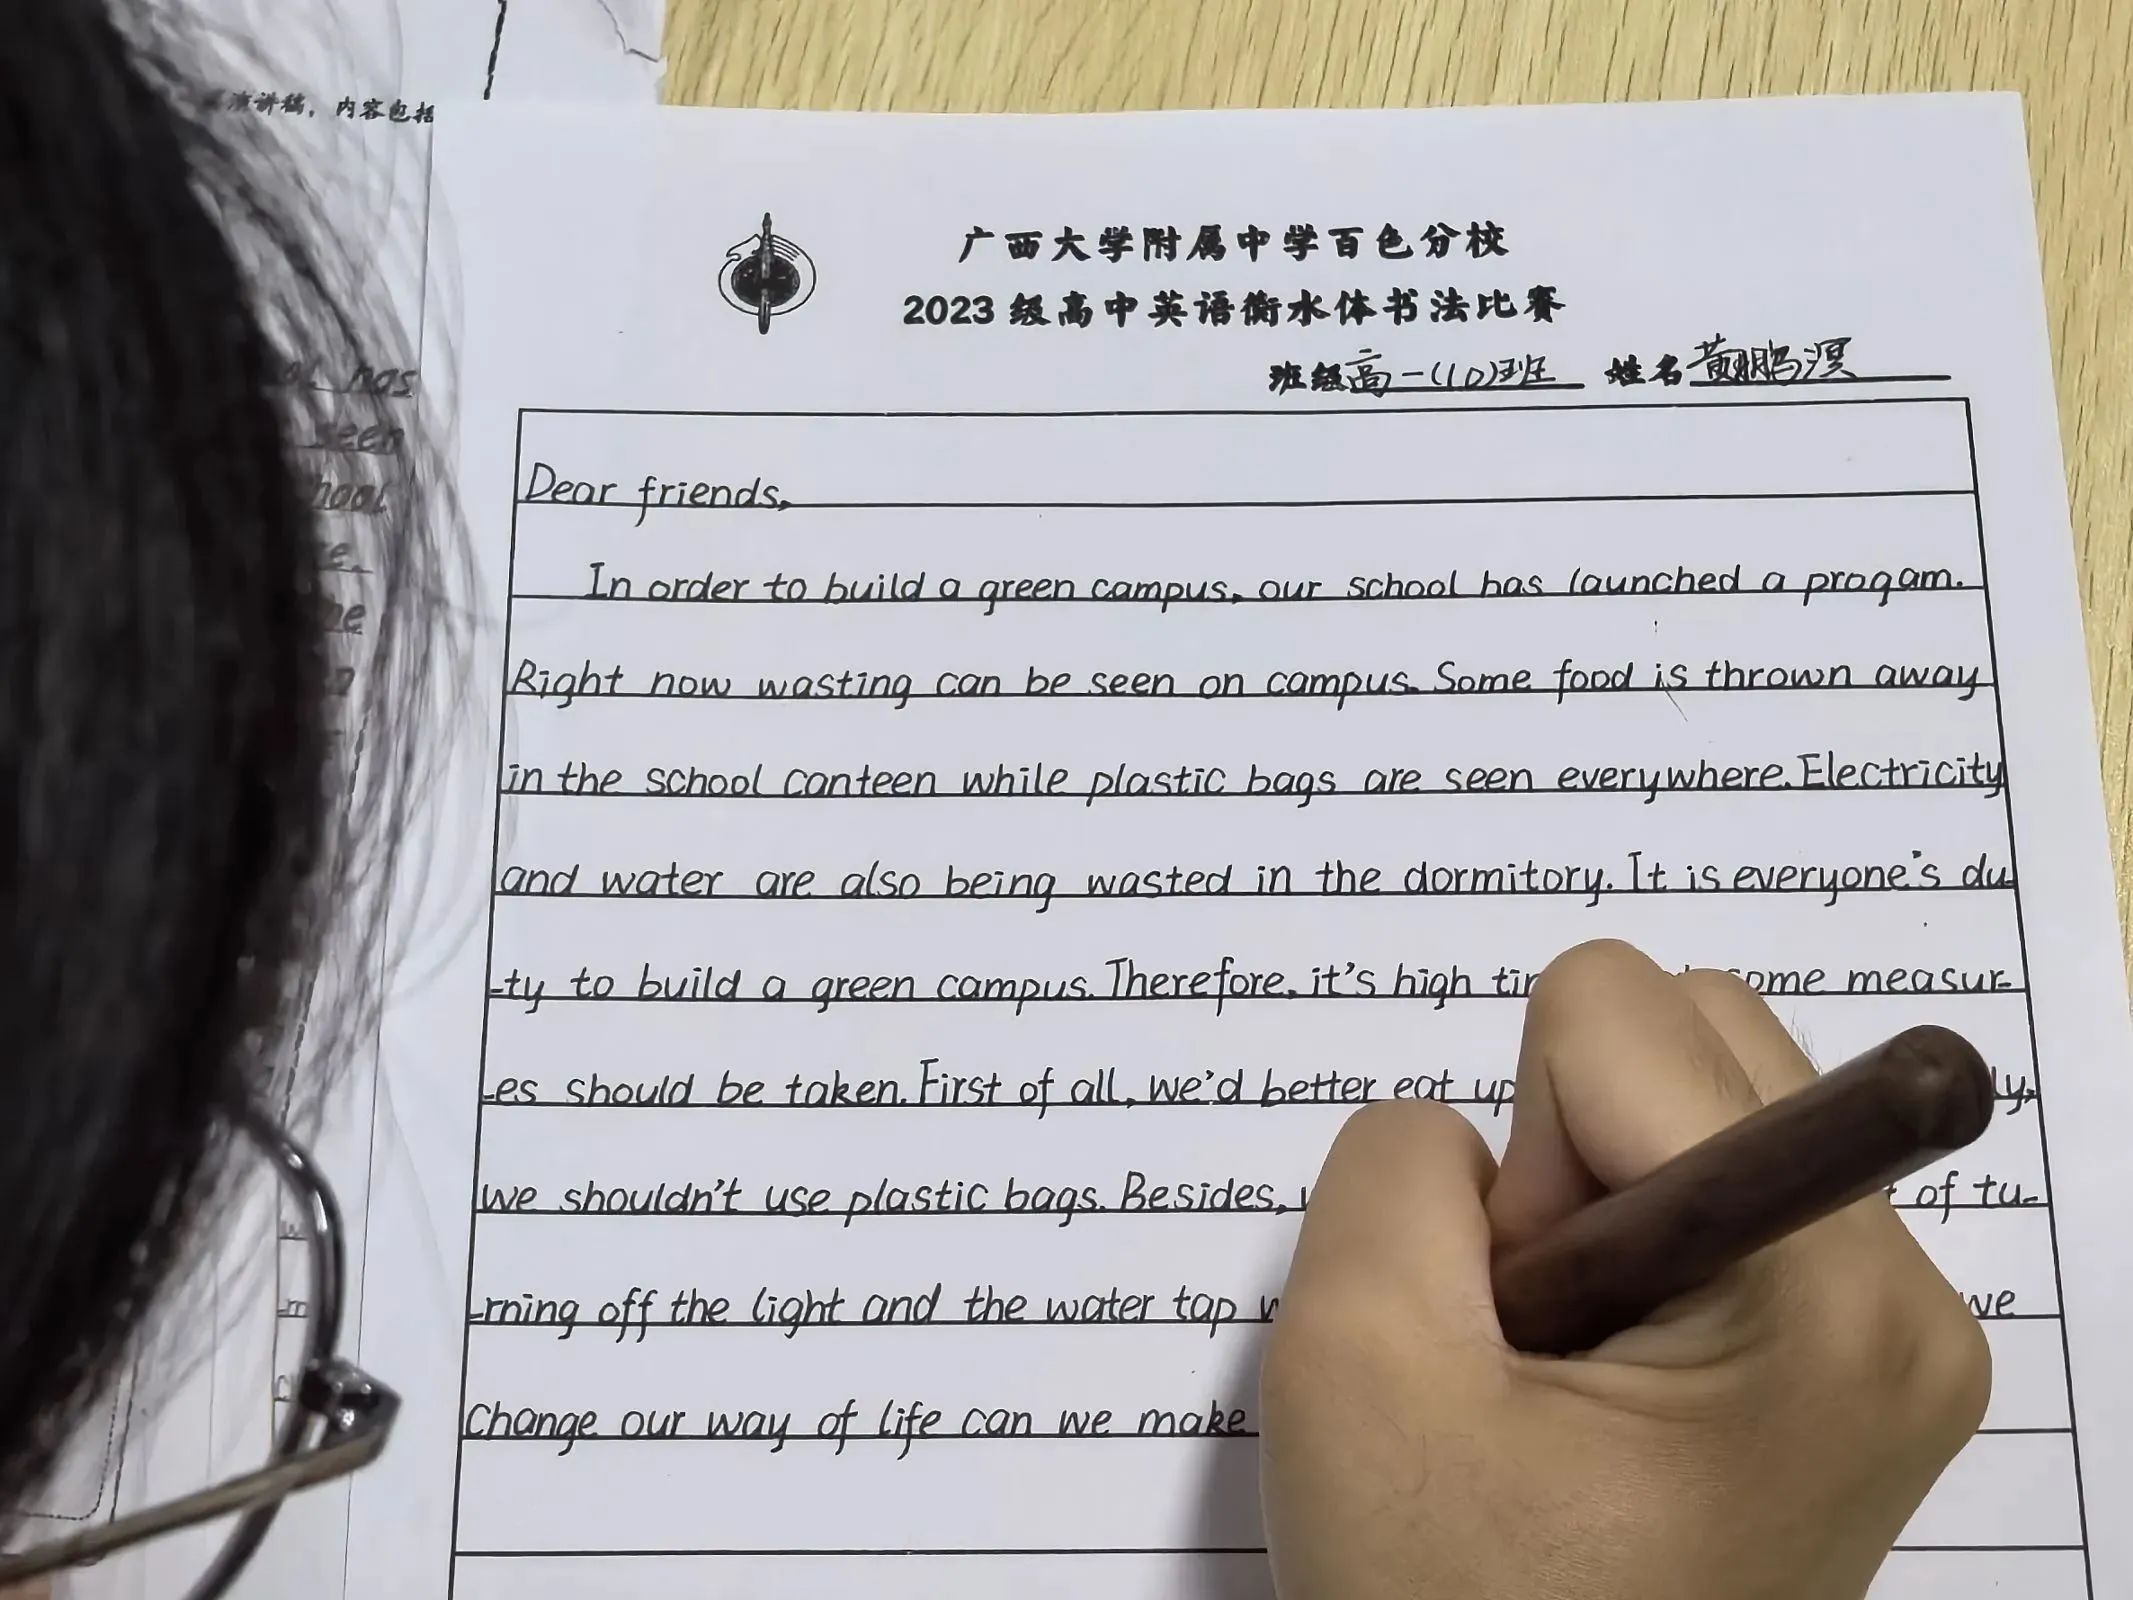 演讲稿，内容包括
广西大学附属中学百色分校
2023 级高中英语衡水体书法比赛
班级高一(10)班 姓名黄鹏溟
has
seen
Dear friends,
In order to build a green campus, our school has launched a progam.
Right now wasting can be seen on campus. Some food is thrown away
in the school canteen while plastic bags are seen everywhere. Electricity
and water are also being wasted in the dormitory. It is everyone's du
-ty to build a green campus. Therefore, it's high some measur-
-es should be taken. First of all, we'd better eat up
we shouldn't use plastic bags. Besides, of tu-
-rning off the light and the water tap we
Change our way of life can we make